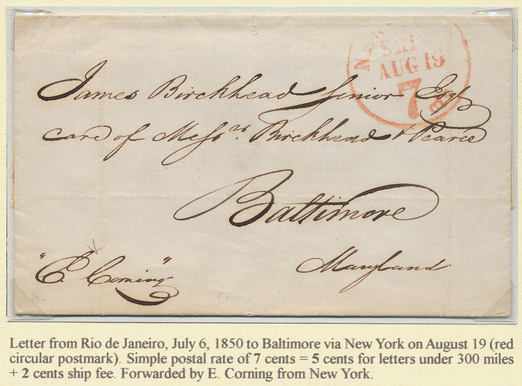 SHIP
AUG 19
7
James Birckhead Senior Esqr
care of Messrs Birckhead & Pearce
Baltimore
Maryland
"E. Corning"
Letter from Rio de Janeiro, July 6, 1850 to Baltimore via New York on August 19 (red
circular postmark). Simple postal rate of 7 cents = 5 cents for letters under 300 miles
+ 2 cents ship fee. Forwarded by E. Corning from New York.